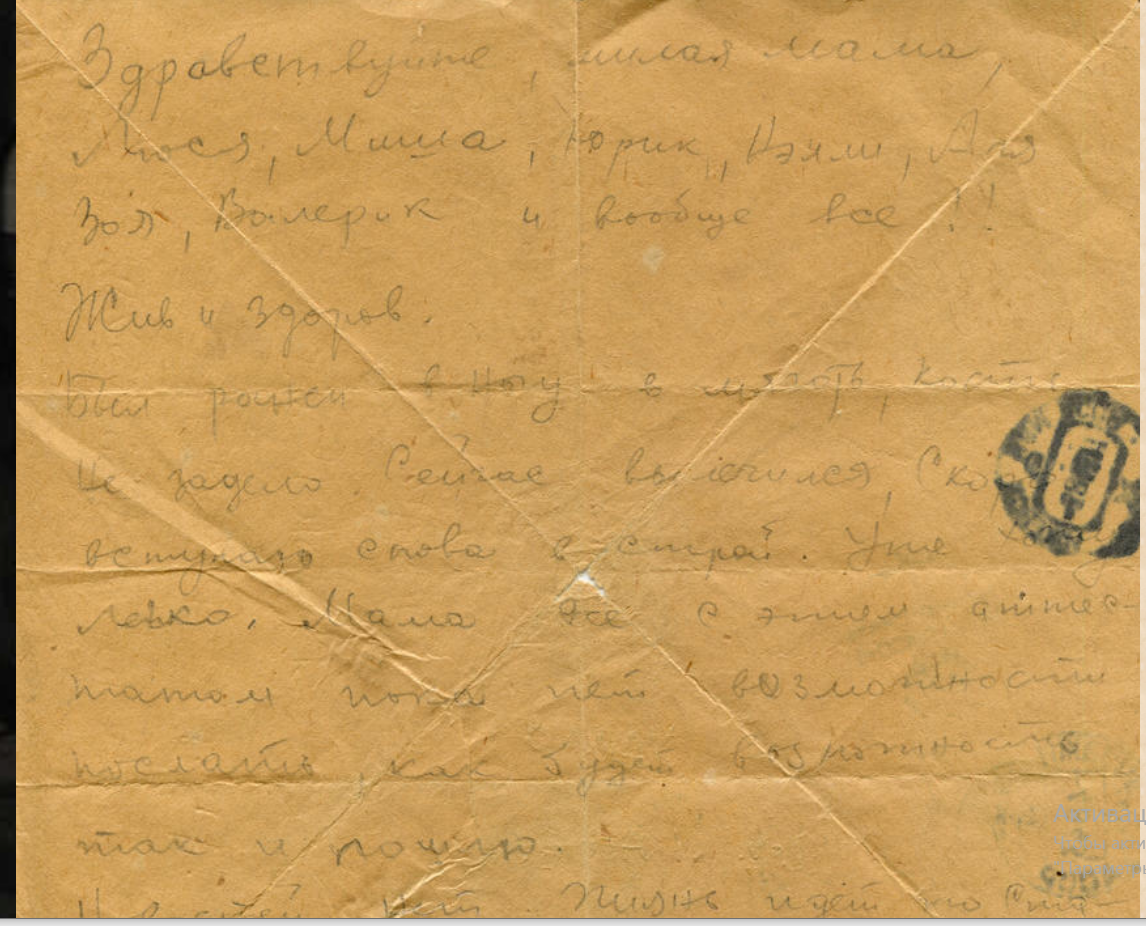 Здравствуйте, милая мама,
Люся, Миша, Юрик, Нэли, Аля
Зоя, Валерик и вообще все!!
Жив и здоров.
Был ранен в ногу в мякоть, кость
не задело. Сейчас вылечился, Скоро
вступаю снова в строй. Уже хожу
легко. Мама же с этим аттес-
татом пока нет возможности
послать, как будет возможность
так и пошлю.
Новостей нет. Жизнь идёт по
Активац